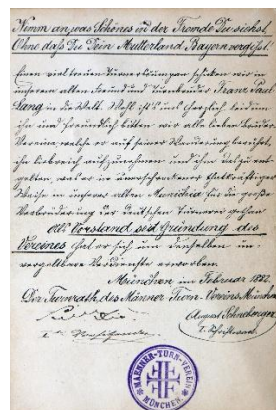 Nimm an was Schönes in der Fremde Du siehst,
Ohne daß Du Dein Mutterland Bayern vergißt.
Einen vieltreuen Turnerkumpan schicken wir in
unserem alten Freund und Turnbruder Franz Paul
Lang in die Welt. Wohl ist's uns herzlich leid um
ihn und freundlich bitten wir alle lieben Bruder
Vereine, welche er auf seiner Wanderung berührt,
ihn liebreich aufzunehmen und ihm das zu ent-
gelten, was er in unverdrossener thatkräftiger
Weise in unserer alten Monachia für die große
Verbrüderung der deutschen Turnerei gethan
Als Vorstand seit Gründung des
Vereines hat er sich um denselben un-
vergeltbare Verdienste erworben.
München im Februar
Der Turnrath des Männer Turn-Vereins München
August
I. Schriftwart.
MAENNER-TURN-VEREIN
MÜNCHEN